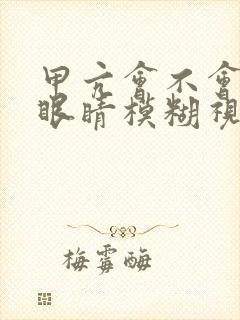 甲亢會不會
眼睛模糊視
梅霉酶